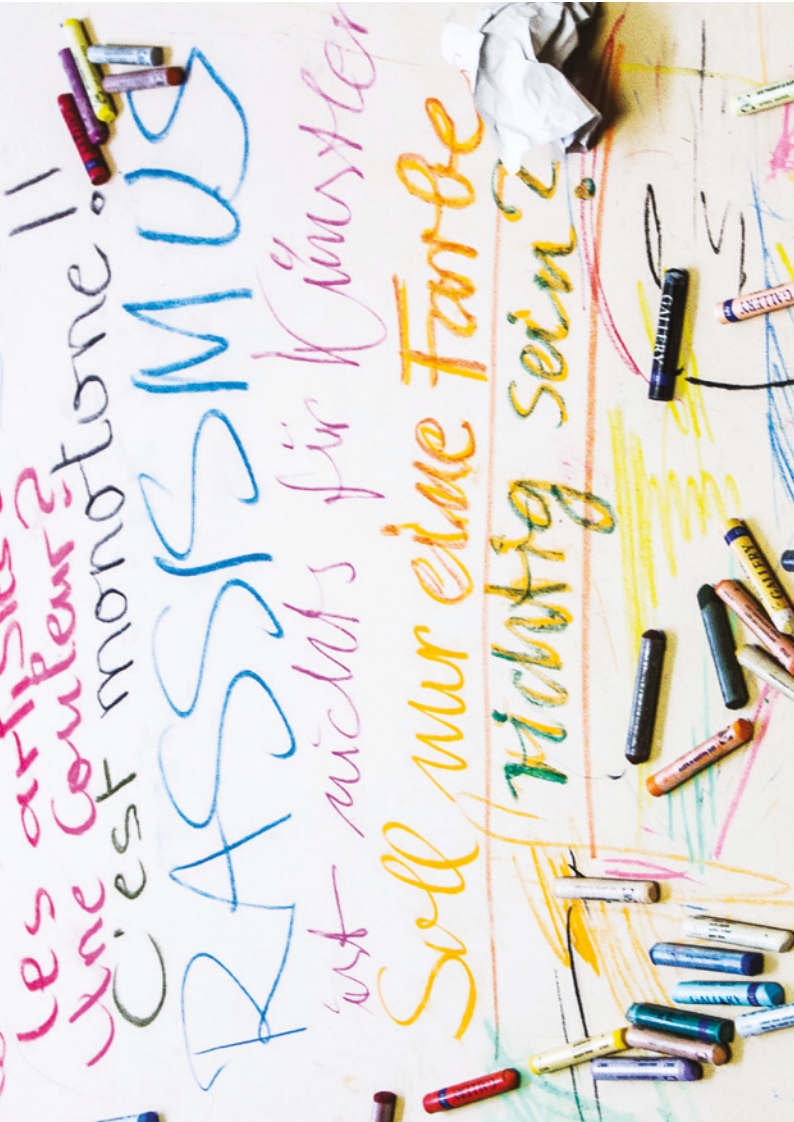 les artistes
une couleur?
C'est monotone!!
RASSISMUS
ist nichts für Künstler
Soll nur eine Farbe
richtig sein?
GALLERY
GALLERY
GALLERY